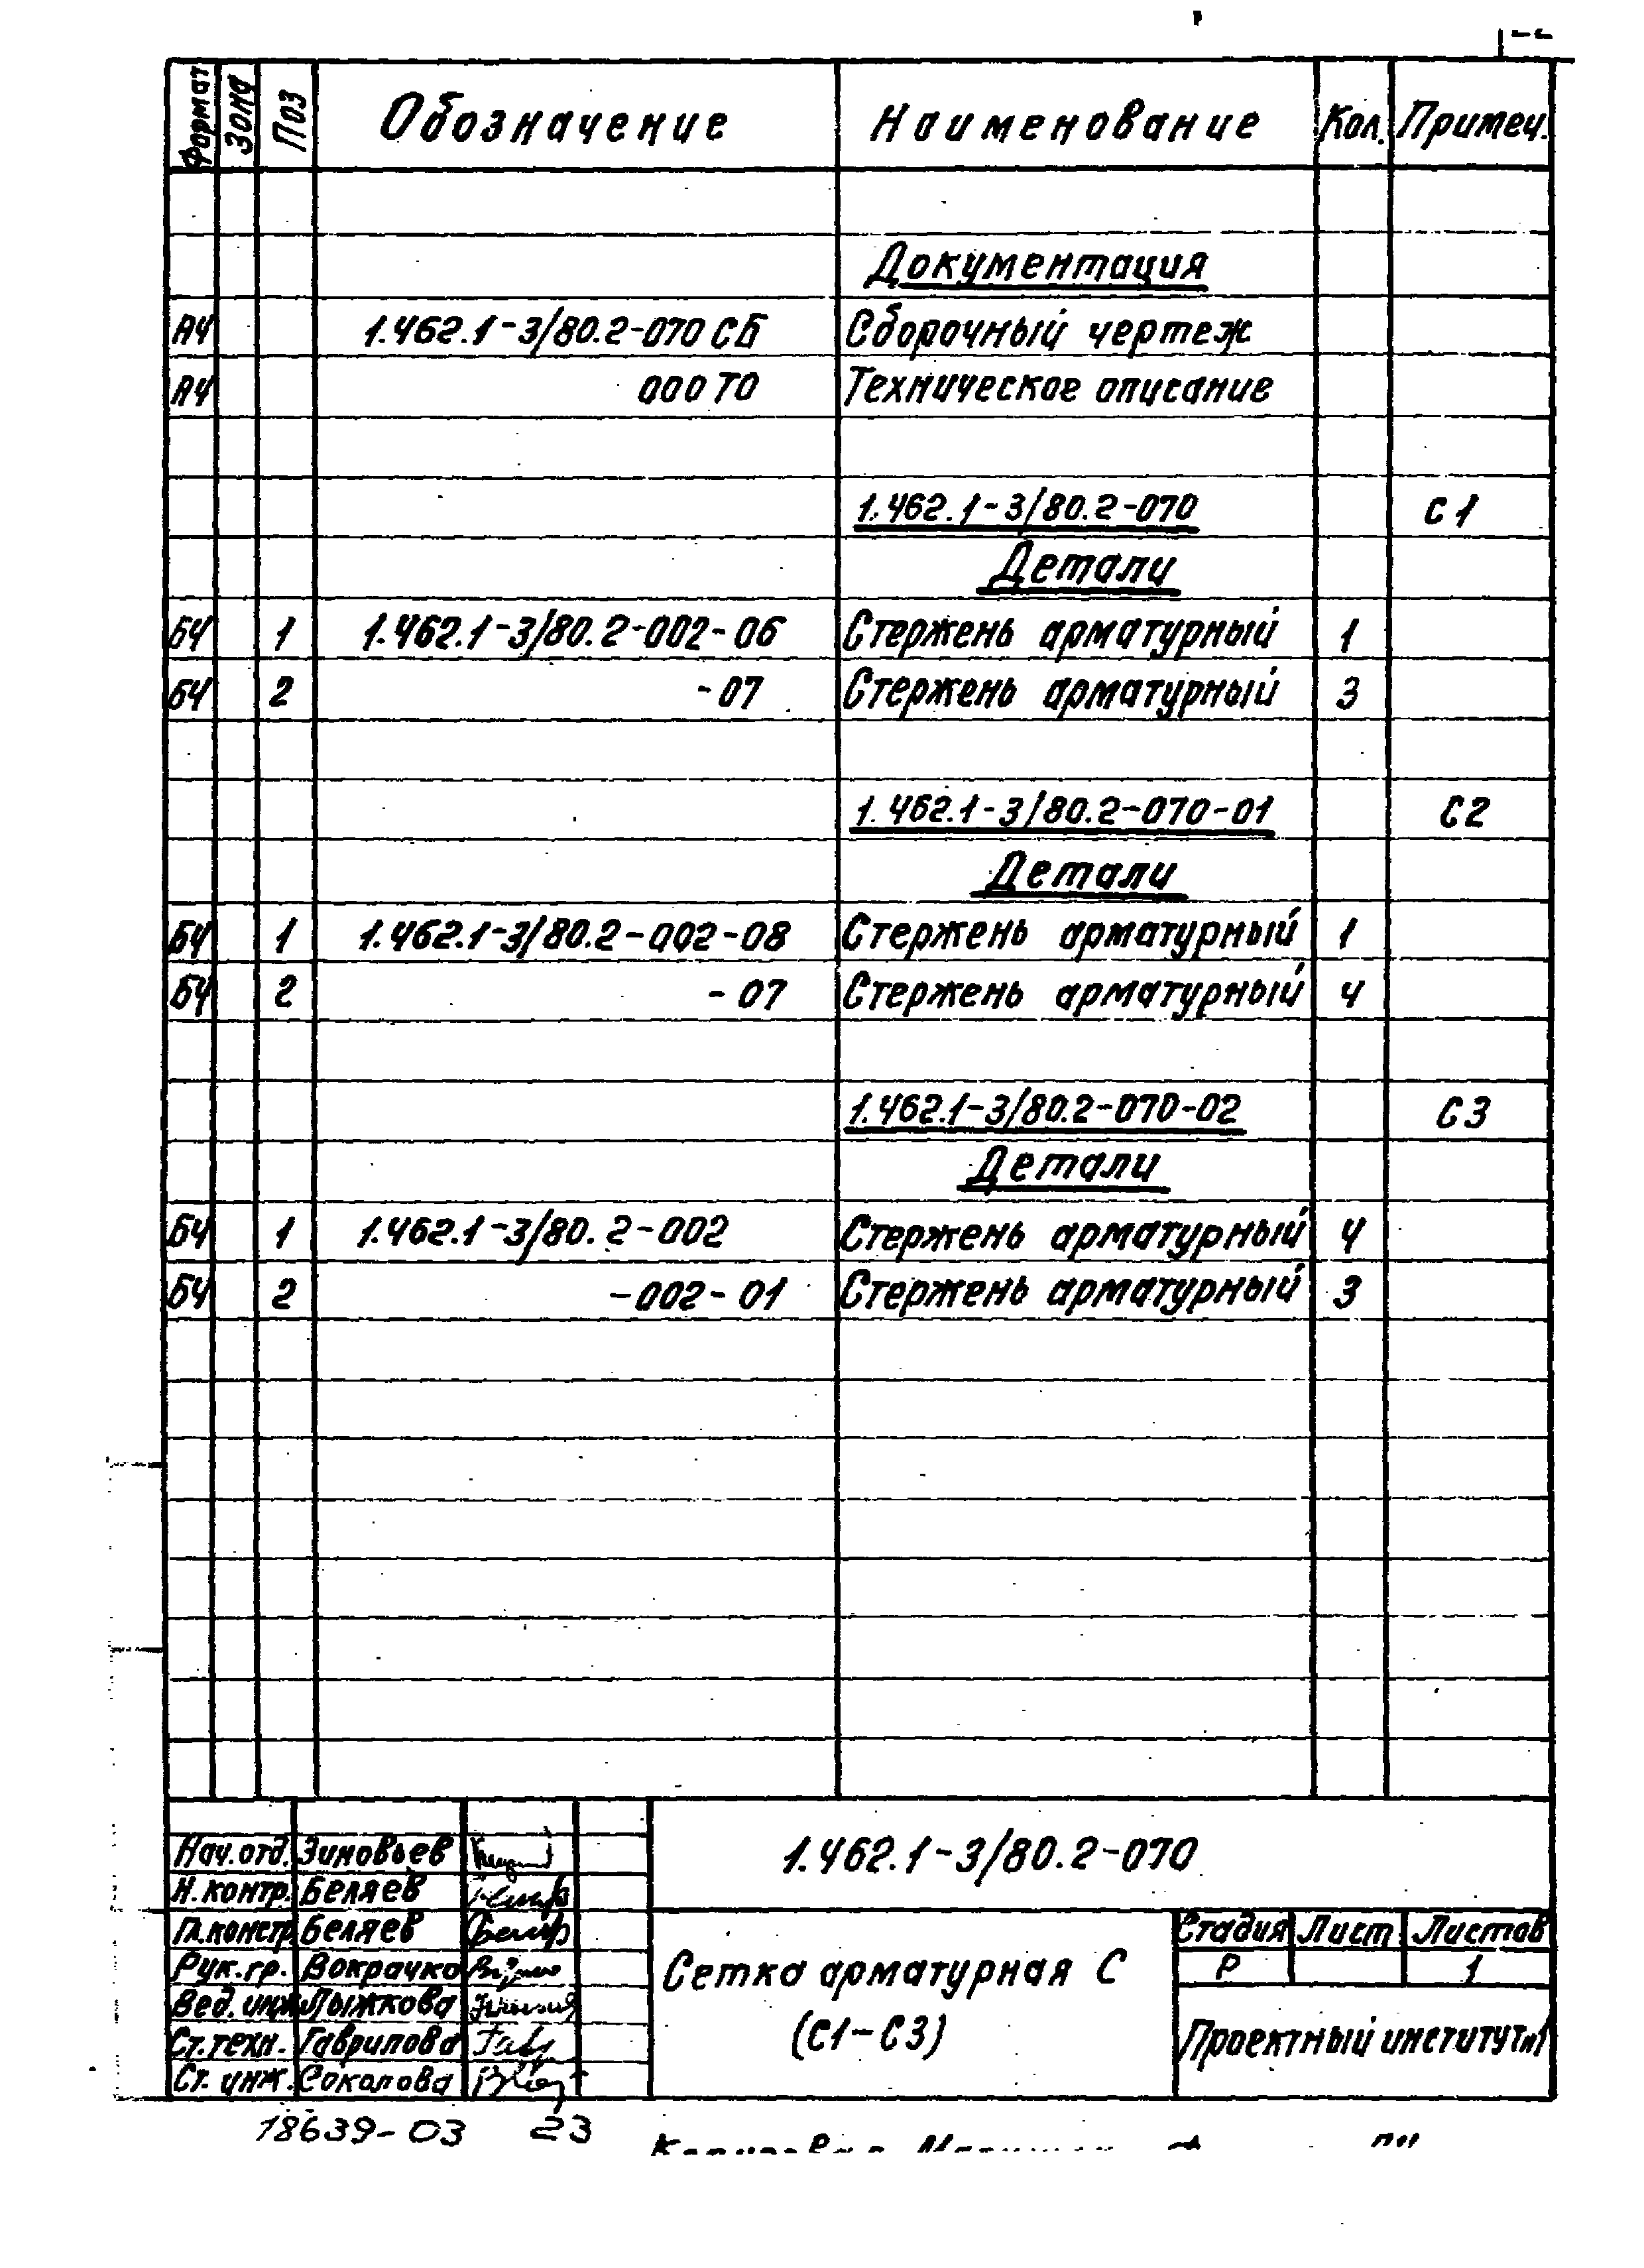 Формат Зона Поз Обозначение Наименование Кол. Примеч.
Документация
А4 1.462.1-3/80.2-070 СБ Сборочный чертеж
А4 000 ТО Техническое описание
1.462.1-3/80.2-070 С1
Детали
БЧ 1 1.462.1-3/80.2-002-06 Стержень арматурный 1
БЧ 2 -07 Стержень арматурный 3
1.462.1-3/80.2-070-01 С2
Детали
БЧ 1 1.462.1-3/80.2-002-08 Стержень арматурный 1
БЧ 2 -07 Стержень арматурный 4
1.462.1-3/80.2-070-02 С3
Детали
БЧ 1 1.462.1-3/80.2-002 Стержень арматурный 4
БЧ 2 -002-01 Стержень арматурный 3
Нач.отд. Зиновьев
Н.контр. Беляев
Гл.констр. Беляев
Рук.гр. Вокрачко
Вед.инж Лыжкова
Ст.техн. Гаврилова
Ст. инж. Соколова
1.462.1-3/80.2-070
Сетка арматурная С
(С1-С3)
Стадия Лист Листов
Р 1
Проектный институт №1
18639-03 23